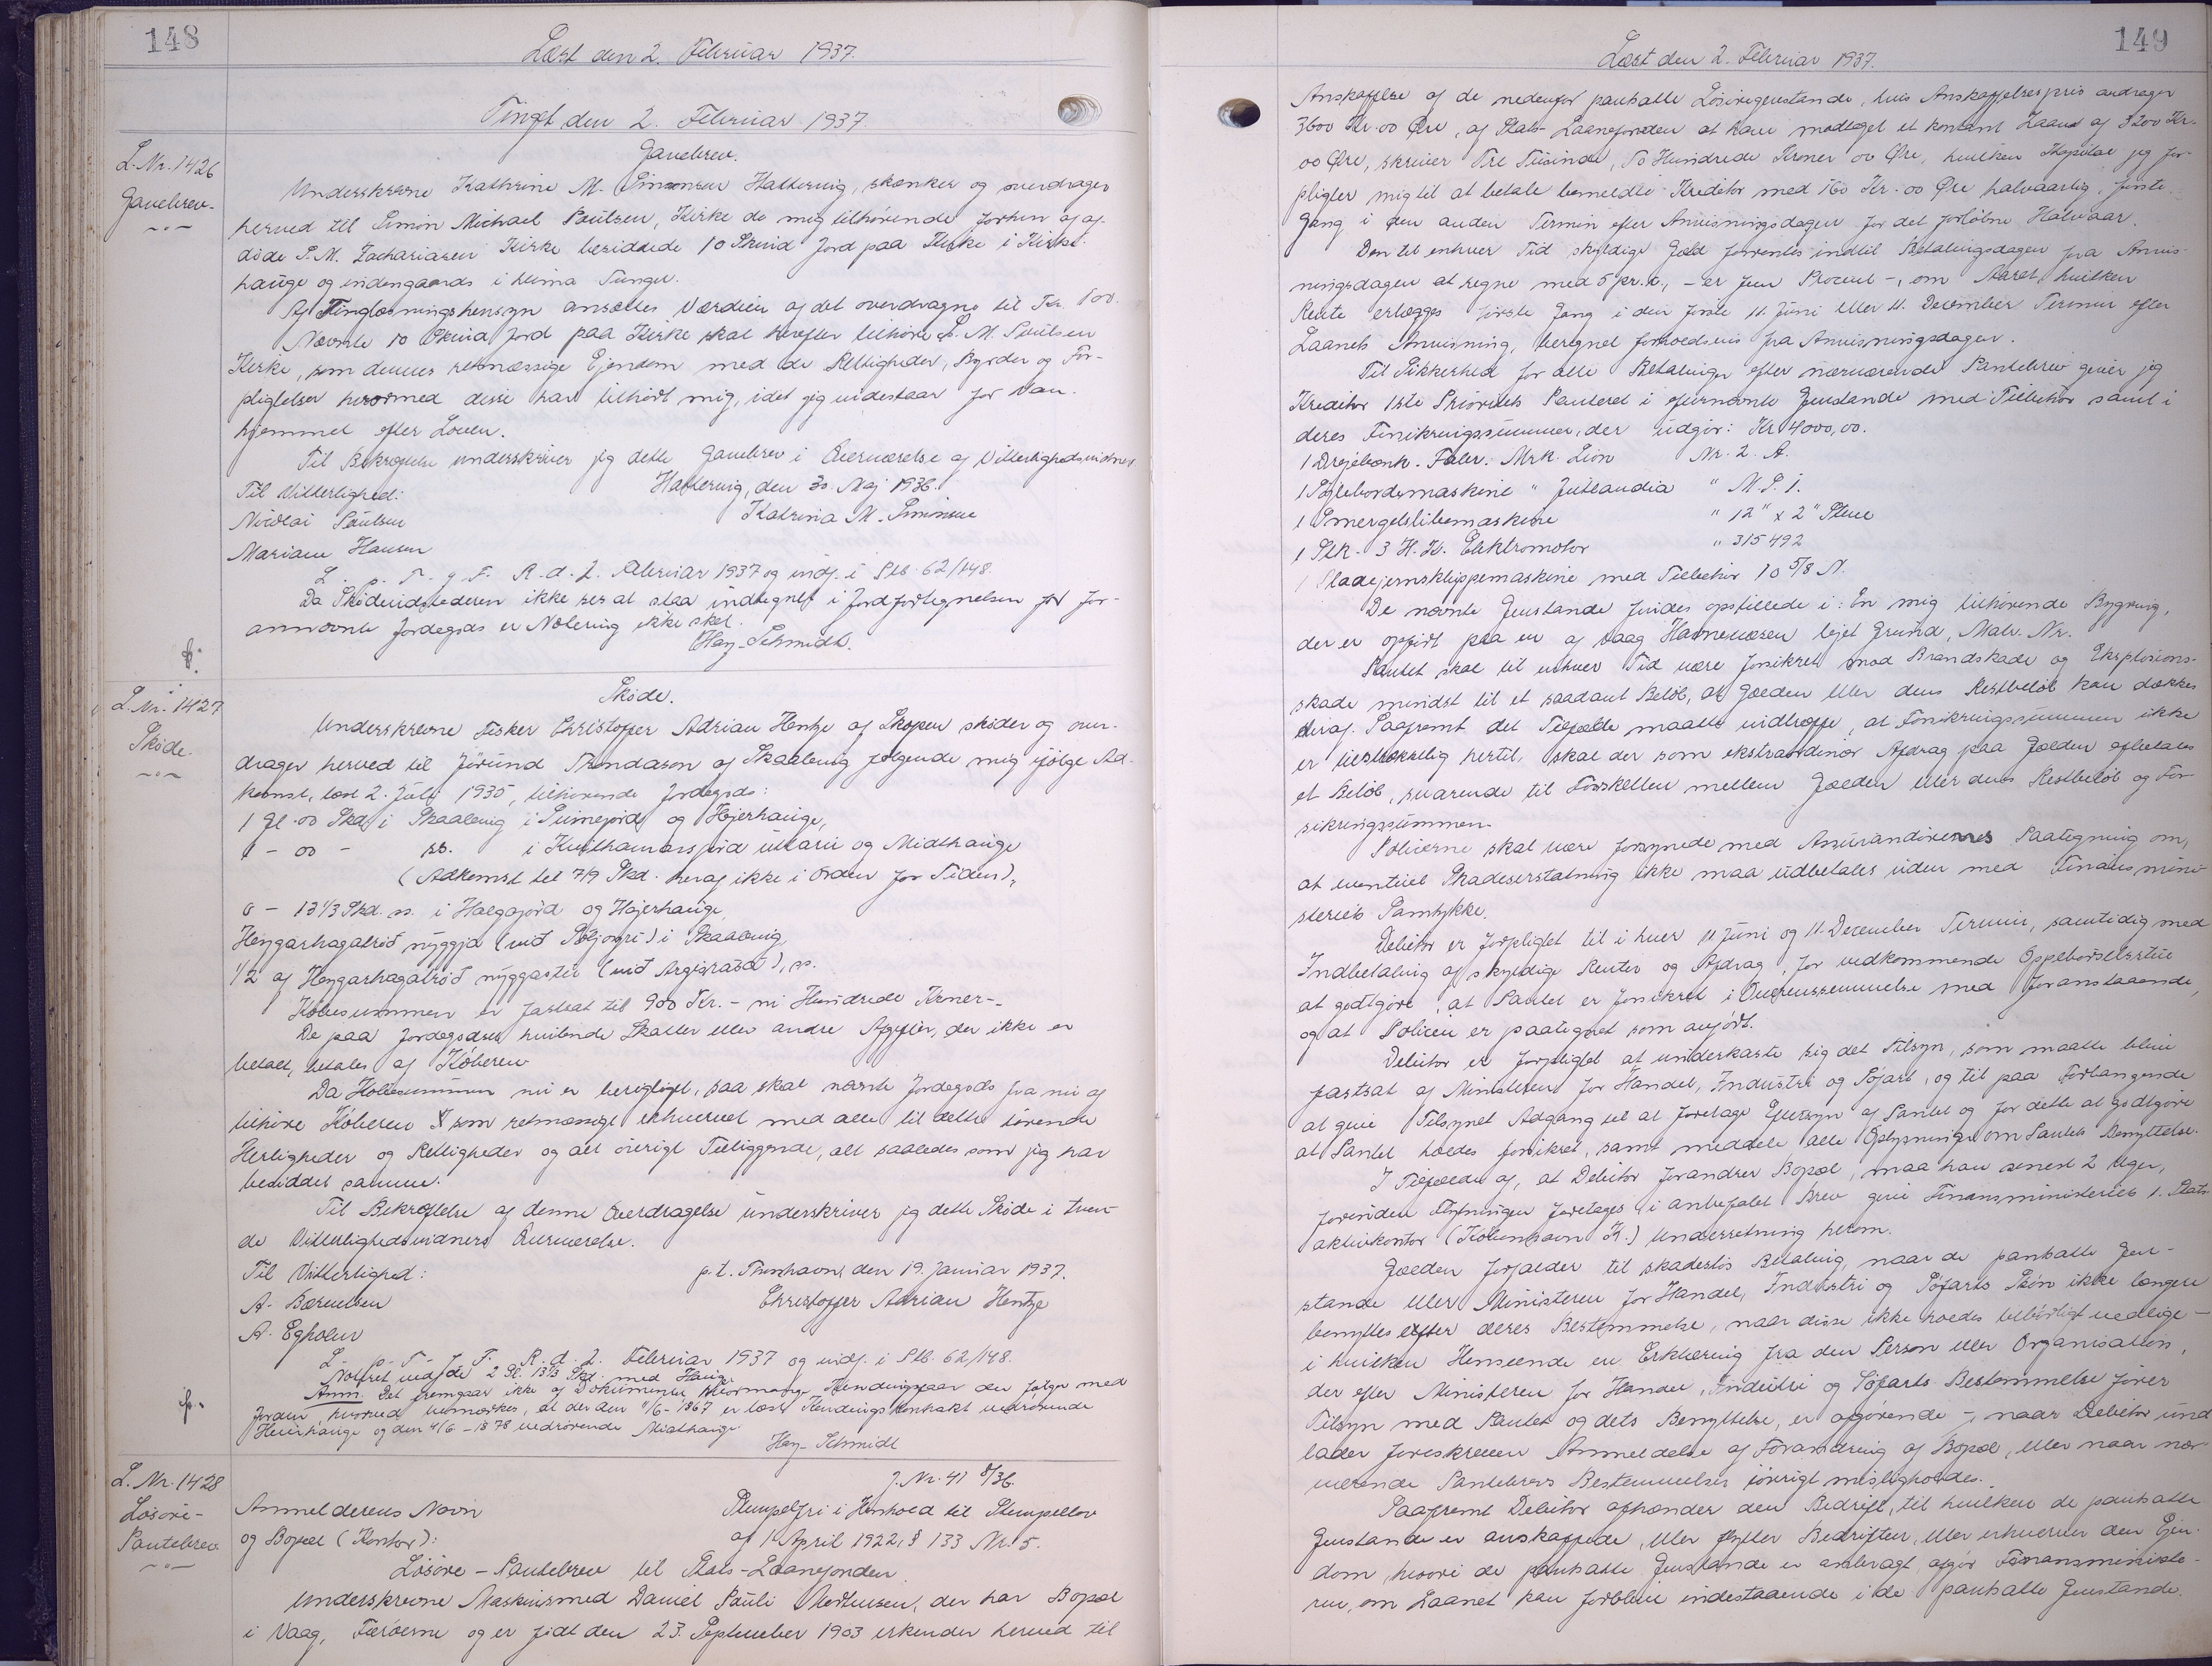 148
Læst den 2. Februar 1937.
Tingl. den 2. Februar 1937
L. Nr. 1426
Gavebrev.
Gavebrev.
Underskrevne Kathrine M. Simonsen Hattervig, skænker og overdrager
herved til Simon Michael Poulsen, Kirke de mig tilhørende forhen af af-
døde S. M. Zachariasen Kirke besiddede 10 Skind Jord paa Kirke i Kirke-
hauge og indengaards i heima Tunger.
Af Tinglæsningshensyn ansættes Værdien af det overdragne til Kr. 100.
Nævnte 10 Skind Jord paa Kirke skal herefter tilhøre S. M. Poulsen
Kirke, som dennes retmæssige Ejendom med de Rettigheder, Byrder og For-
pligtelser hvormed disse har tilhørt mig, idet jeg indestaar for Van-
hjemmel efter Loven.
Til Bekræftelse underskriver jeg dette Gavebrev i Overværelse af Vitterlighedsvidner.
Til Vitterlighed:
Hattervig, den 30. Maj 1936.
Nicolai Poulsen
Katrina M. Simonsen
Mariane Hansen
L. p. T. f. F. R. d. 2. Februar 1937 og indf. i Skb. 62/148.
Da Skødeudstederen ikke ses at staa indtegnet i Jordfortegnelsen for for-
annævnte Jordegods er Notering ikke sket.
Hay-Schmidt.
L. Nr. 1427
Skøde.
Skøde.
Underskrevne Fisker Christoffer Adrian Hentze af Skopen skøder og over-
drager herved til Jörund Thondason af Skaalevig følgende mig ifølge Ad-
komst, læst 2. Juli 1935, tilhørende Jordegods:
1 Gl. 00 Skd. i Skaalevig i Sumejord og Højerhauge,
1 - 00 - ss. i Kvilhamarsjørd uttari og Midthauge
(Adkomst til 7/9 Skd. heraf ikke i Orden for Tiden),
0 - 13 1/3 Skd. ss. i Halgajørd og Højerhauge,
Heygarhagatrøð nýggja (við Stóljogvi) i Skaalevig,
1/2 af Heygarhagatrøð nýggastu (við Argisráða), ss.
Købesummen er fastsat til 900 Kr. - ni Hundrede Kroner-.
De paa Jordegodset hvilende Skatter eller andre Afgifter, der ikke er
betalt, betales af Køberen
Da Købesummen nu er berigtiget, saa skal nævnte Jordegods fra nu af
tilhøre Køberen som retmæssigt erhvervet med alle til dette hørende
Herligheder og Rettigheder og alt øvrigt Tilliggende, alt saaledes som jeg har
besiddet samme.
Til Bekræftelse af denne Overdragelse underskriver jeg dette Skøde i tven-
de Vitterlighedsvidners Overværelse.
Til Vitterlighed:
p.t. Thorshavn, den 19. Januar 1937.
A. Bærentsen
Christoffer Adrian Hentze
A. Egholm
L. p. T. f. F. R. d. 2. Februar 1937 og indf. i Skb. 62/148.
Noteret ved de 2 Gl. 13 1/3 Skd. med Hauge
Anm. Det fremgaar ikke af Dokumentet hvormange Kendingsfaar der følger med
Jorden, hvorved bemærkes, at der den 11/6-1867 er læst Kendingskontrakt vedrørende
Heierhauge og den 4/6-1878 vedrørende Midthauge
Hay-Schmidt
L. Nr. 1428
Løsøre-
Pantebrev
J. Nr. 41 8/36.
Anmelderens Navn
Stempelfri i Henhold til Stempellov
og Bopæl (Kontor):
af 1 April 1922, § 133 Nr. 5.
Løsøre-Pantebrev til Stats-Laanefonden
Underskrevne Maskinsmed Daniel Pauli Mortensen, der har Bopæl
i Vaag, Færøerne og er født den 23. September 1903 erkender herved til
149
Læst den 2. Februar 1937.
Anskaffelse af de nedenfor pantsatte Løsøregenstande, hvis Anskaffelsespris andrager
3600 Kr. 00 Øre, af Stats-Laanefonden at have modtaget et kontant Laan af 3200 Kr.
00 Øre, skriver Tre Tusinde, To Hundrede Kroner 00 Øre, hvilken Kapital jeg for-
pligter mig til at betale bemeldte Kreditor med 160 Kr. 00 Øre halvaarlig, første
Gang i den anden Termin efter Anvisningsdagen for det forløbne Halvaar.
Den til enhver Tid skyldige Gæld forrentes indtil Betalingsdagen fra Anvis-
ningsdagen at regne med 5 pr. c., - er fem Procent -, om Aaret, hvilken
Rente erlægges første Gang i den første 11. Juni eller 11. December Termin efter
Laanets Anvisning, beregnet forholdsvis fra Anvisningsdagen.
Til Sikkerhed for alle Betalinger efter nærværende Pantebrev giver jeg
Kreditor 1ste Prioritets Panteret i efternævnte Genstande med Tilbehør samt i
deres Forsikringssummer, der udgør: Kr. 4000,00.
1 Drejebænk. Fabr. Mrk. Lion Nr. 2. A.
1 Søjlebormaskine " Jutlandia " M. S. 1.
1 Smergelslibemaskine " 12" x 2" Stene
1 Stk. 3 H. K. Elektromotor " 315492
1 Pladejernsklippemaskine med Tilbehør 10 5/8 N.
De nævnte Genstande findes opstillede i: En mig tilhørende Bygning,
der er opført paa en af Vaag Havnevæsen lejet Grund, Matr. Nr.
Pantet skal til enhver Tid være forsikret mod Brandskade og Eksplosions-
skade mindst til et saadant Beløb, at Gælden eller dens Restbeløb kan dækkes
deraf. Saafremt det Tilfælde maatte indtræffe, at Forsikringssummen ikke
er tilstrækkelig hertil, skal der som ekstraordinær Afdrag paa Gælden afbetales
et Beløb, svarende til Forskellen mellem Gælden eller dens Restbeløb og For-
sikringssummen.
Policerne skal være forsynede med Assurandørernes Paategning om,
at eventuel Skadeserstatning ikke maa udbetales uden med Finansmini-
steriets Samtykke.
Debitor er forpligtet til i hver 11 Juni og 11. December Termin, samtidig med
Indbetaling af skyldige Renter og Afdrag, for vedkommende Oppebørselsstue
at godtgøre, at Pantet er forsikret i Overensstemmelse med foranstaaende,
og at Policen er paategnet som anført.
Debitor er forpligtet at underkaste sig det Tilsyn, som maatte blive
fastsat af Ministeren for Handel, Industri og Søfart, og til paa Forlangende
at give Tilsynet Adgang til at foretage Eftersyn af Pantet og for dette at godtgøre
at Pantet holdes forsikret, samt meddele alle Oplysninger om Pantets Benyttelse.
I Tilfælde af, at Debitor forandrer Bopæl, maa han senest 2 Uger,
forinden Flytningen foretages i anbefalet Brev give Finansministeriets 1. Stats-
aktivkontor (København K.) Underretning herom.
Gælden forfalder til skadesløs Betaling, naar de pantsatte Gen-
stande eller Ministeren for Handel, Industri og Søfarts Skøn ikke længere
benyttes efter deres Bestemmelse, naar disse ikke holdes tilbørligt vedlige -
i hvilken Henseende en Erklæring fra den Person eller Organisation,
der efter Ministeren for Handel, Industri og Søfarts Bestemmelse fører
Tilsyn med Pantet og dets Benyttelse, er afgørende -, naar Debitor und-
lader foreskreven Anmeldelse af Forandring af Bopæl, eller naar nær-
værende Pantebrevs Bestemmelser iøvrigt misligholdes.
Saafremt Debitor afhænder den Bedrift, til hvilken de pantsatte
Genstande er anskaffede, eller flytter Bedriften, eller erhverver den Ejen-
dom, hvori de pantsatte Genstande er anbragt, afgør Finansministe-
ren, om Laanet kan forblive indestaaende i de pantsatte Genstande.